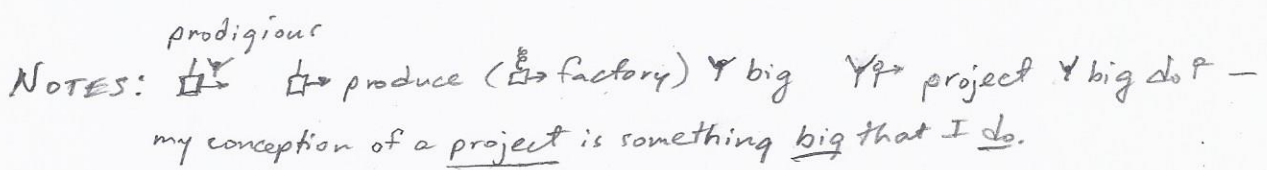 prodigious
NOTES: produce ( factory) big project big do —
my conception of a project is something big that I do.